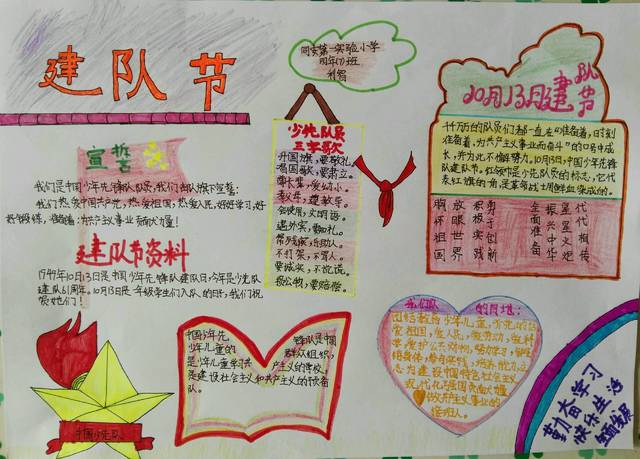 建队节
同安第一实验小学
四年(7)班
宣誓
我们是中国少年先锋队队员,我们在队旗下宣誓:
我们热爱中国共产党,热爱祖国,热爱人民,好好学习,好
好锻炼,准备着:为共产主义事业贡献力量!
建队节资料
1949年10月13日是中国少年先锋队建队日,今年是少先队
建队61周年。10月13日是一年级学生们入队的日子,我们祝
贺她们!
中国少先队
少先队员
三字歌
升国旗,要敬礼。
唱国歌,要肃立。
尊长辈,爱幼小。
孝父母,尊教导。
会使用,文明语。
遇外宾,有礼。
常残疾,乐助人。
不打架,不骂人。
要诚实,不说谎。
损公物,要赔偿。
10月13日建队节
千千万万的队员们都一直在"准备着,时刻
准备着,为共产主义事业而奋斗"的口号中成
长,并为此不懈努力。10月13日,中国少年先锋
队建队节。红领巾是少先队员的标志,它代
表红旗的一角,是革命战士用鲜血染成的。
胸怀祖国
放眼世界
积极实践
勇于创新
全面准备
振兴中华
星星火炬
代代相传
中国少年先锋队是中国
少年儿童的群众组织,
是少年儿童学习共产主义的学校,
是建设社会主义和共产主义的预备
队。
我们队的目地:
团结教育少年儿童,听党的话
爱祖国,爱人民,爱劳动,爱科
学,爱护公共财物,努力学习,锻炼
身体,培养能力,立
志为建设中国特色社会主义
现代化强国贡献力量
做共产主义事业的
接班人。
勤奋学习
快乐生活
全面发展